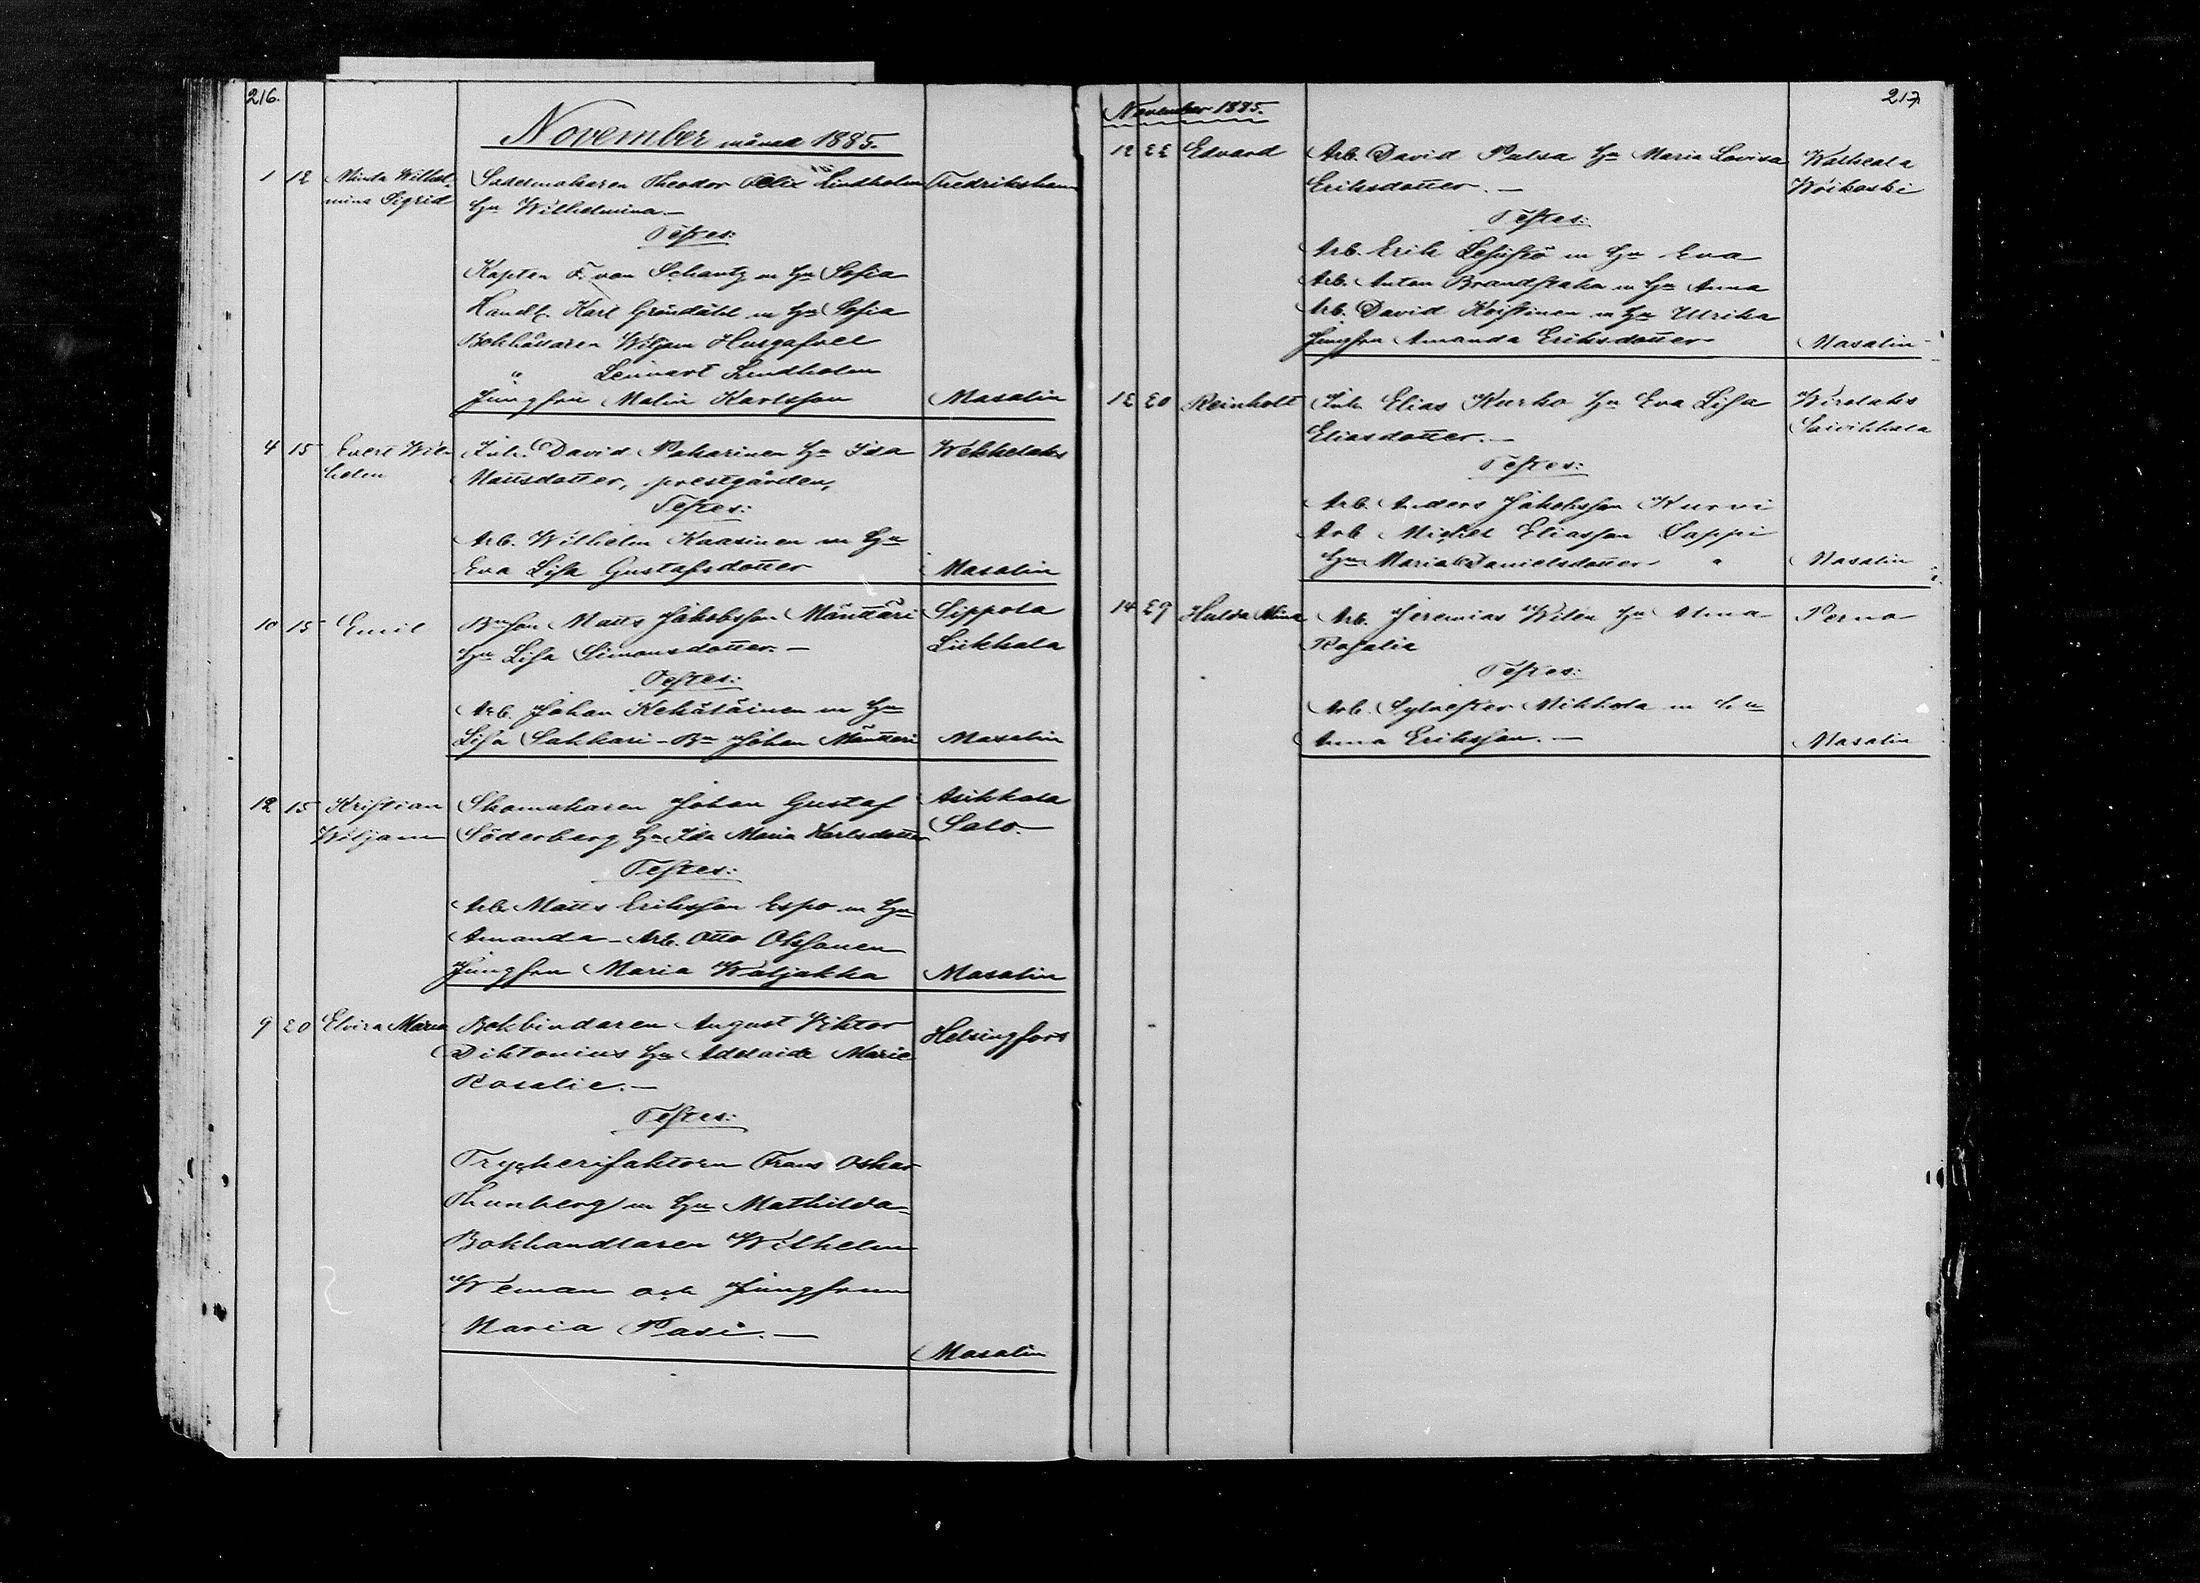 216.
November månad 1885.
1 12 Minda Wilhel- Sadelmakaren Theodor Felix Lindholm Fredrikshamn
mina Sigrid Hu Wilhelmina.—
Testes:
Kapten F. von Schantz m Hu Sofia
Handl. Karl Gröndahl m Hu Sofia
Bokhållaren Wiljam Husgafvel
" Lennart Lindholm
Jungfru Malin Karlsson Masalin
4 15 Evert Wil- Inh. David Paharinen Hu Ida Wekkelaks
helm Mattsdotter, prestgården,
Testes:
Arb. Wilhelm Kaasinen m Hu
Eva Lisa Gustafsdotter Masalin
10 15 Emil Matts Jakobsson Mänttäri Sippola
Hu Lisa Simonsdotter.— Liikkala
Testes:
Arb. Johan Kekäläinen m Hu
Lisa Sakkari - Bn Johan Mänttäri Masalin
12 15 Kristian Skomakaren Johan Gustaf Asikkala
Wiljam Söderberg Hu Ida Maria Karlsdotter Salo.
Testes:
Arb. Matts Eriksson Espo m Hu
Amanda - Arb. Otto Oksanen
Jungfru Maria Waljakka Masalin
9 20 Elvira Maria Bokbindaren August Viktor Helsingfors
Diktonius Hu Adelaide Marie
Rosalie.—
Testes:
Tryckerifaktorn Frans Oskar
Thunberg m Hu Mathilda
Bokhandlaren Wilhelm
Weman och Jungfrun
Maria Pasi.—
Masalin
217
November 1885.
12 22 Edvard Arb. David Pulsa Hu Maria Lovisa Walkeala
Eriksdotter.— Woikoski
Testes:
Arb. Erik m Hu Eva
Arb. Anton Brandstaka m Hu Anna
Arb. David Koistinen m Hu Ulrika
Jungfru Amanda Eriksdotter Masalin
12 20 Reinholt Inh. Elias Kurko Hu Eva Lisa Wirolaks
Eliasdotter.— Saivikkala
Testes:
Arb. Anders Jakobsson Kurvi
Arb Michel Eliasson Sappi
Hu Maria Danielsdotter " Masalin
14 29 Hulda Alina Arb. Jeremias Wilén Hu Alma Perno
Rosalia
Testes:
Arb. Sylvester Mikkola m Hu
Anna Eriksson.— Masalin